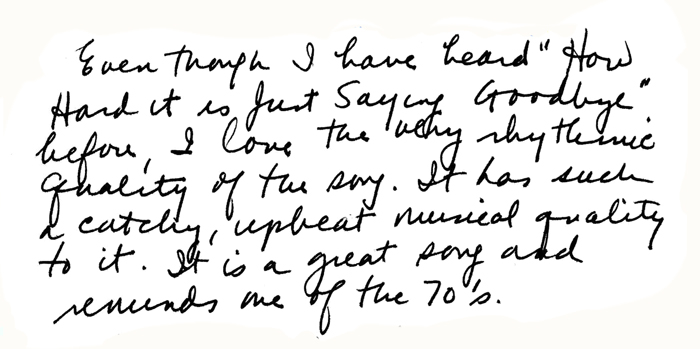 Even though I have heard "How
Hard it is Just Saying Goodbye"
before, I love the very rhythmic
quality of the song. It has such
a catchy, upbeat musical quality
to it. It is a great song and
reminds me of the 70's.